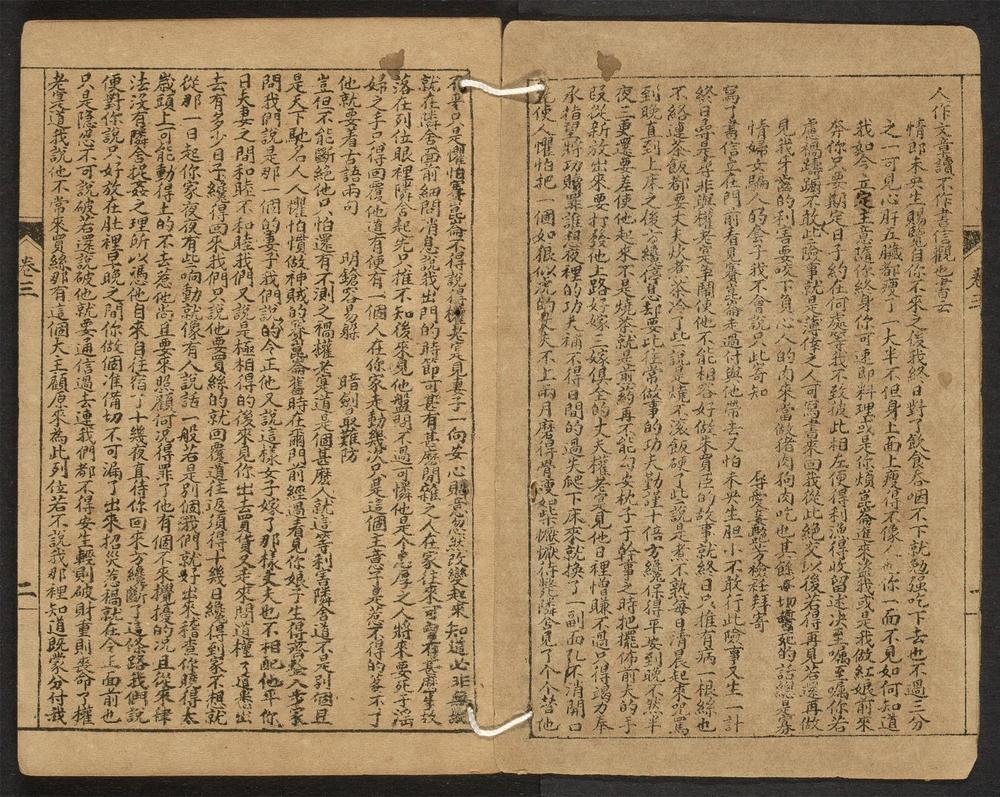 人作文章讀不作書信觀也書云
情郎未央生賜覽自你不來之後我終日對了飲食吞咽不下就勉强吃下去也不過三分
之一可見心肝五臟都變了一大半不但身上面上瘦得不像人也你一面不見如何知道
我如今立定主意隨你終身你可速即料理或是你煩崑崙進來盜我或是我做紅娘前來
奔你只要期定日子約在何處等我不致彼此相左便得利漁得收留述決至囑至囑你若
慮禍躊躇不敢此險事就是薄倖之人可寫書來回我從此絕交以後若得再見若還再做
見我牙齒的利害要咬下負心人的肉來當做猪肉狗肉吃也其餘死的話總是寡
情婦女騙人的套子我不會說只此寄知
辱愛妾艷芳檢衽拜寄
寫了書信立在門前看見賽崑崙走過付與他帶去又怕未央生胆小不敢行此險事又生一計
終日尋是尋非與權老實爭鬧使他不能相容好做朱買臣的故事就終日只推有病一根綫也
不絡連茶飯都要丈夫炊煮茶冷了此說是燒不滾飯硬了此說是煮不熟每日清晨起來咒罵
到晚直到上床之後方纔停息却要比往常做事的功夫勤謹十倍方纔保得平安到晚不然半
夜三更還要差使他起來不是燒茶就是煎藥再不能勾安枕子于幹事之時把擺佈前夫的手
段從新放出來要打發他上路好嫁三嫁俱全的大夫權老實見他日裡憎嫌不過只得竭力奉
承指望將功贖罪誰想夜裡的功夫稱不得日間的過失爬下床來就換了一副面孔不消開口
使人懼怕把一個如狼似虎的丈夫不上兩月磨得骨瘦如柴懨懨待斃隣舍見了个个替他
不平只是懼怕賽崑崙不得說得權老實見妻子一向安心貼意忽然改變起來知道必非無故
就在隣舍面前細問消息說我出門的時節可甚有甚麽閒雜之人在家往來可曾有甚麽事故
落在列位眼裡隣舍起先只推不知後來見他盤問不過可憐他是个忠厚之人將來要死于淫
婦之手只得回覆他道有便有一個人在你家走動幾次只是這個主意子是惹不得的惹不了
他就要着古語兩句
明鎗容易躲　　暗劍最難防
豈但不能斷絕他只怕還有不測之禍權老實道是個甚麽人就這等利害隣舍道不是別個且
是天下馳名人人懼怕慣做神賊的賽崑崙舊時在爾門前經過看見你娘子生得齊整入步來
問我們說是那一個的妻子我們說的令正他又說這樣女子嫁了那樣丈夫也不相配他平你
日夫妻之間和睦不和睦我們又說是極相得的後來見你出去買貨又走來問道權了道某出
去有多少日子纔得回來我們只說他要買絲的就回覆道往返須得十幾日纔得到家不想就
從那一日起你家夜夜有些响動就像有人說話一般若是別個我們就好出來稽查你曉得太
歲頭上可能動得土的不去惹他尚且要來照顧何況得罪了他有個不來攪擾的况且從來律
法沒有隣舍捉姦之理所以憑他自來自往宿了十幾夜直待你回來方纔斷了這條路我們說
便對你說只好放在肚裡早晚之間你做個准備切不可漏了出來招災惹禍就在令正面前也
只是隱忍不可說破若還說破他就要通信過去連我們都不得安生輕則破財重則喪命了權
老實道我說他不常來買絲那有這個大主顧原來為此列位若不說我那裡知道既蒙分付我
卷三
二
卷三